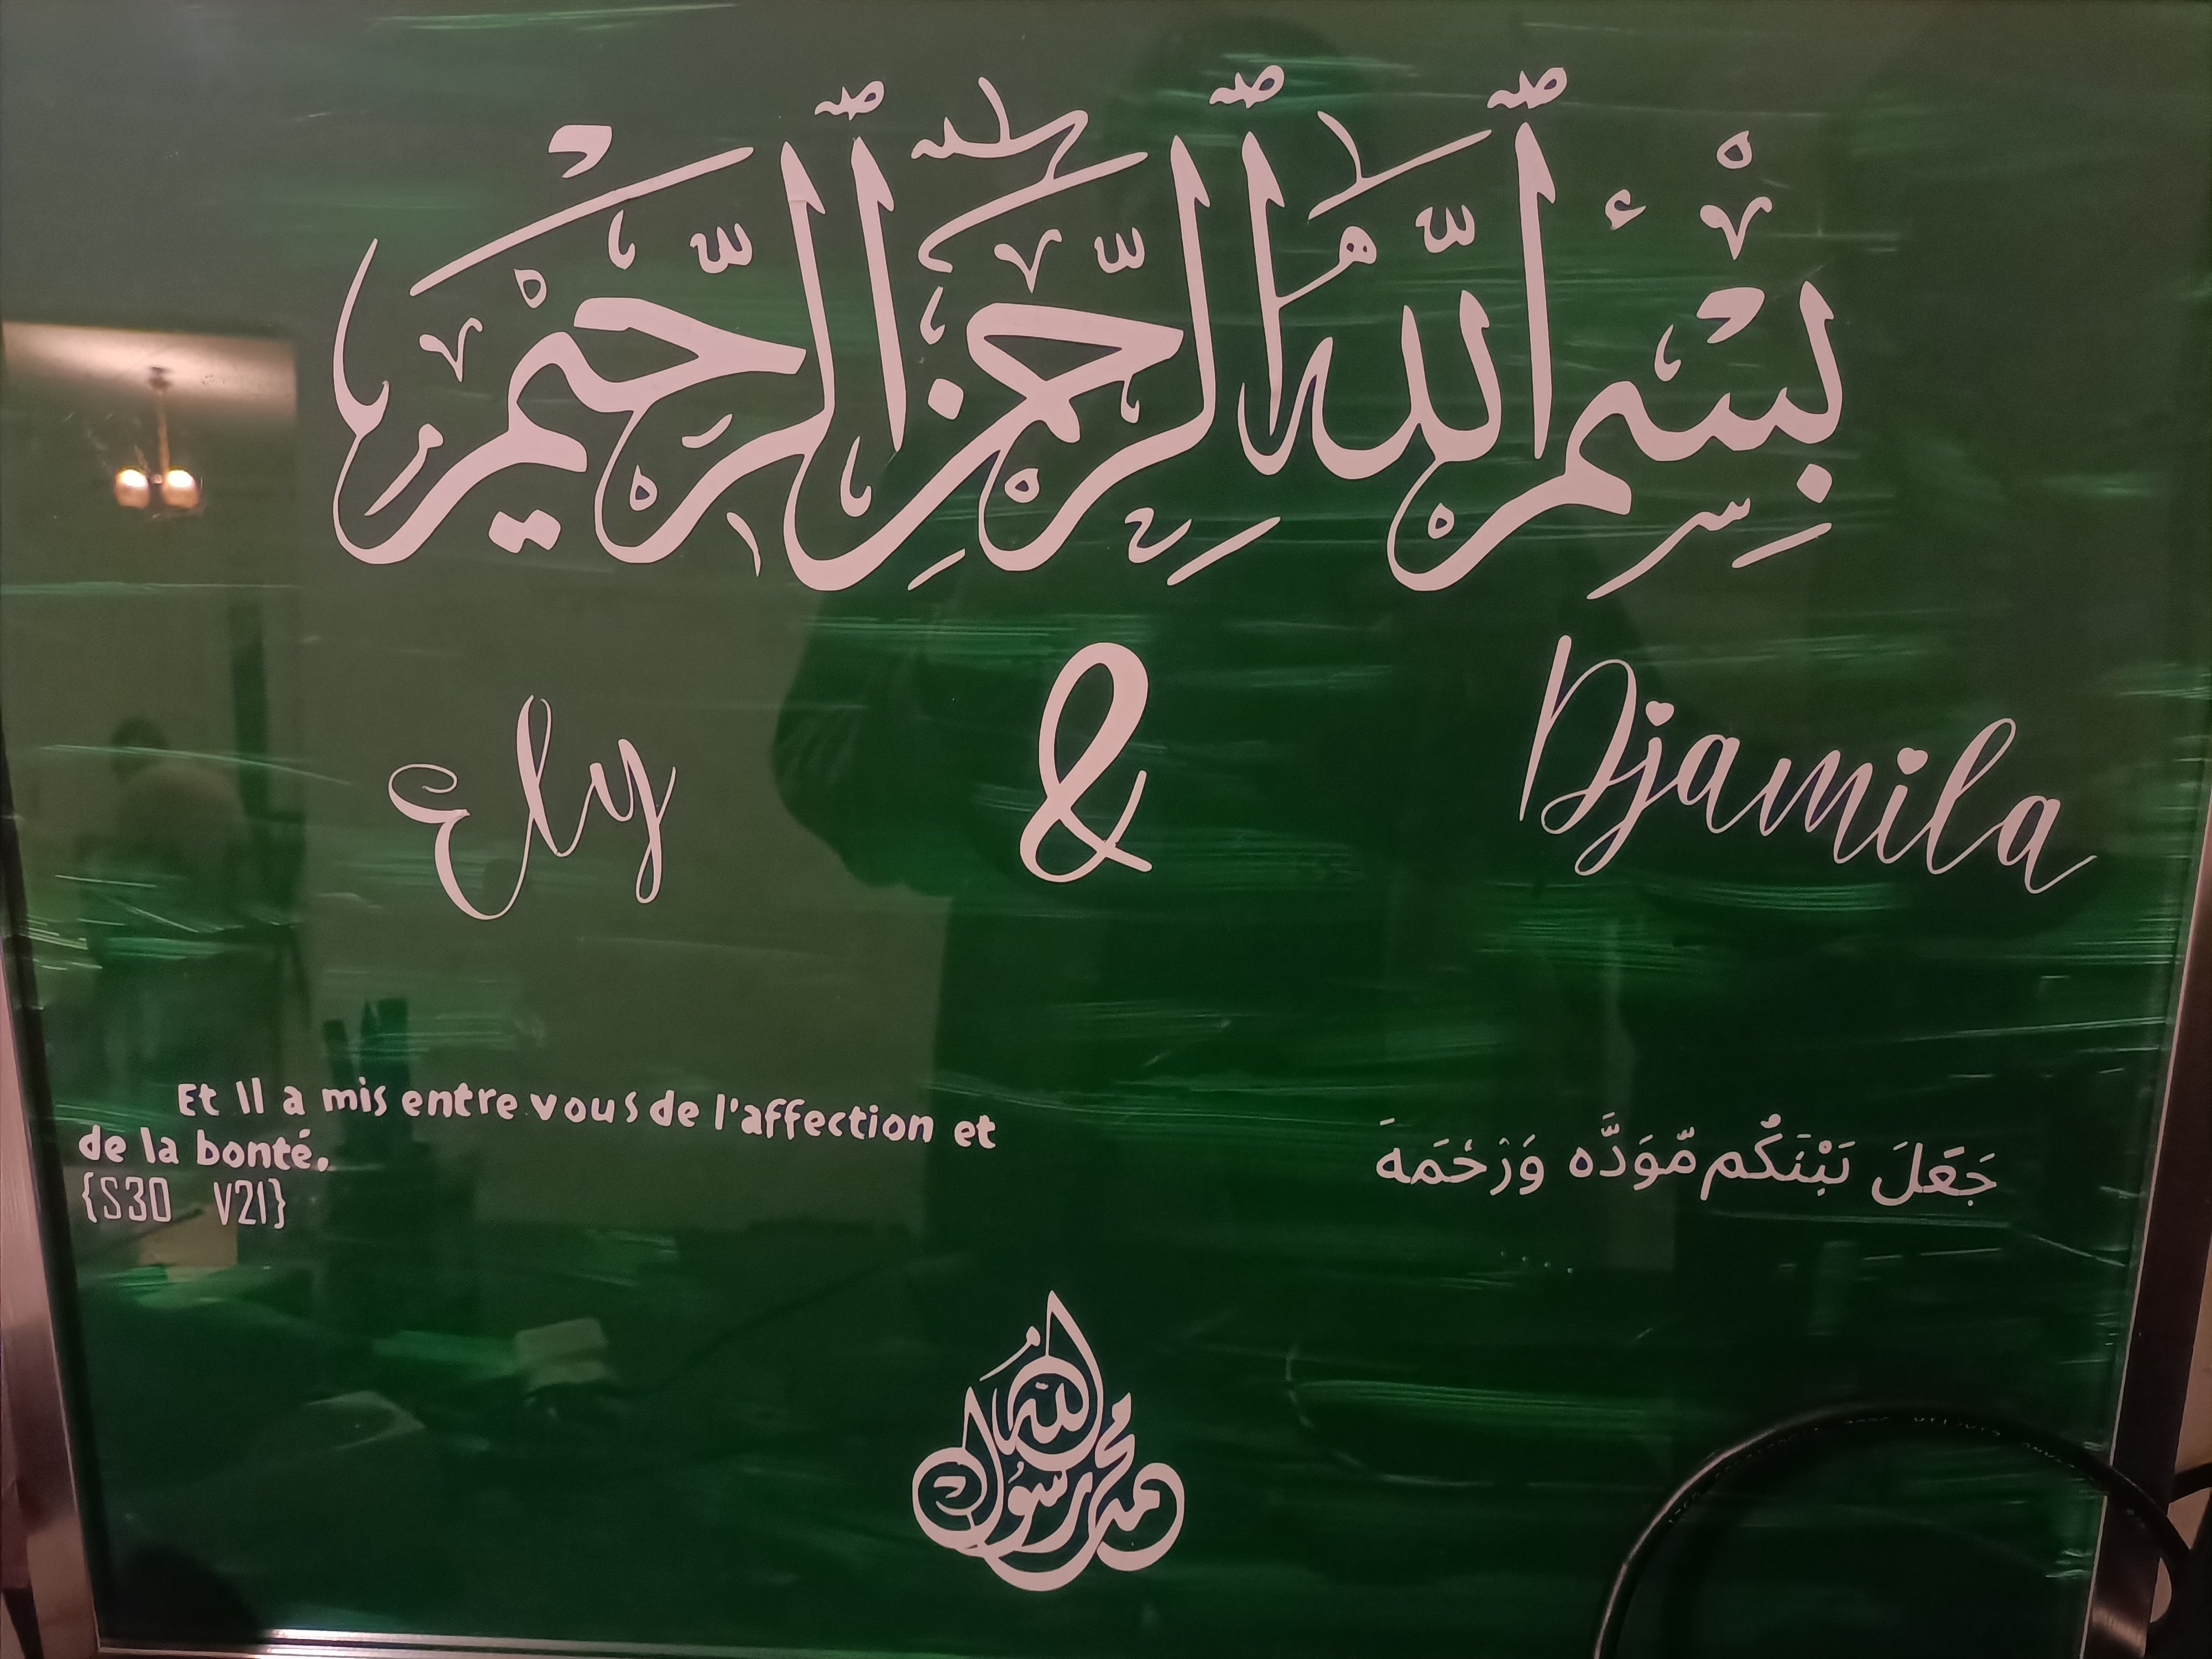 بِسْمِ ٱللَّٰهِ ٱلرَّحْمَٰنِ ٱلرَّحِيمِ
Ely & Djamila
Et Il a mis entre vous de l'affection et
de la bonté.
{S30 V21}
جَعَلَ بَيْنَكُم مَّوَدَّه وَرَحْمَهَ
محمد رسول الله